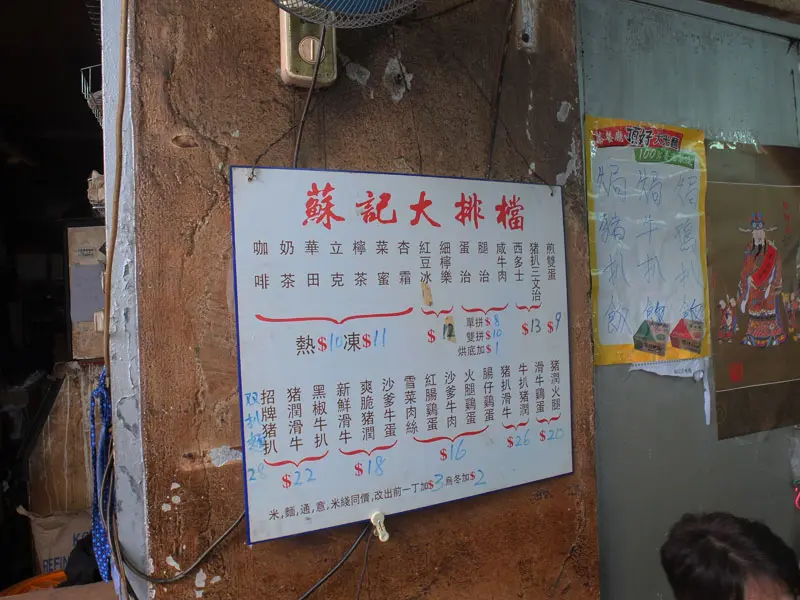 蘇記大排檔
咖啡
奶茶
華田
立克
檸茶
菜蜜
杏霜
紅豆冰
細檸樂
蛋治
腿治
咸牛肉
西多士
豬扒三文治
煎雙蛋
熱$10凍$11
單拼$8
雙拼$10
烘底加$1
$13
$9
双扒麵 28
招牌豬扒
豬潤滑牛
黑椒牛扒
新鮮滑牛
爽脆豬潤
沙爹牛蛋
雪菜肉絲
紅腸雞蛋
沙爹牛肉
火腿雞蛋
腸仔雞蛋
豬扒滑牛
牛扒豬潤
滑牛雞蛋
豬潤火腿
$22
$18
$16
$26
$20
米,麵,通,意,米綫同價,改出前一丁加$3,烏冬加$2
頂好
焗豬扒飯
焗牛扒飯
焗雞扒飯